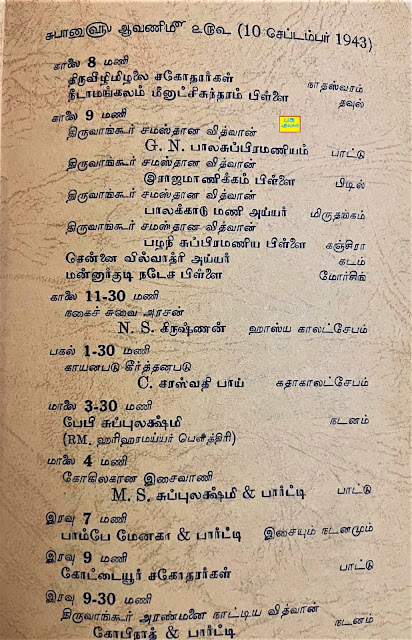 சுபானுஸ்ரீ ஆவணிமீ உருவ (10 செப்டம்பர் 1943)
காலை 8 மணி
திருவிழிமிழலை சகோதரர்கள் நாதஸ்வரம்
நீடாமங்கலம் மீனாட்சிசுந்தரம் பிள்ளை தவுல்
காலை 9 மணி
திருவாங்கூர் சமஸ்தான வித்வான்
G. N. பாலசுப்பிரமணியம் பாட்டு
திருவாங்கூர் சமஸ்தான வித்வான்
இராஜமாணிக்கம் பிள்ளை பிடில்
திருவாங்கூர் சமஸ்தான வித்வான்
பாலக்காடு மணி அய்யர் மிருதங்கம்
திருவாங்கூர் சமஸ்தான வித்வான்
பழநி சுப்பிரமணிய பிள்ளை கஞ்சிரா
சென்னை வில்வாத்ரி அய்யர் கடம்
மன்னார்குடி நடேச பிள்ளை மோர்சிங்
காலை 11-30 மணி
நகைச் சுவை அரசன்
N. S. கிருஷ்ணன் ஹாஸ்ய காலட்சேபம்
பகல் 1-30 மணி
காயனபடு கீர்த்தனபடு
C. சரஸ்வதி பாய் கதாகாலட்சேபம்
மாலை 3-30 மணி
பேபி சுப்புலக்ஷ்மி நடனம்
(RM. ஹரிஹரமய்யர் பெளத்திரி)
மாலை 4 மணி
கோகிலகான இசைவாணி
M. S. சுப்புலக்ஷ்மி & பார்ட்டி பாட்டு
இரவு 7 மணி
பாம்பே மேனகா & பார்ட்டி இசையும் நடனமும்
இரவு 9 மணி
கோட்டையூர் சகோதரர்கள் பாட்டு
இரவு 9-30 மணி
திருவாங்கூர் அரண்மனை நாட்டிய வித்வான்
கோபிநாத் & பார்ட்டி நடனம்